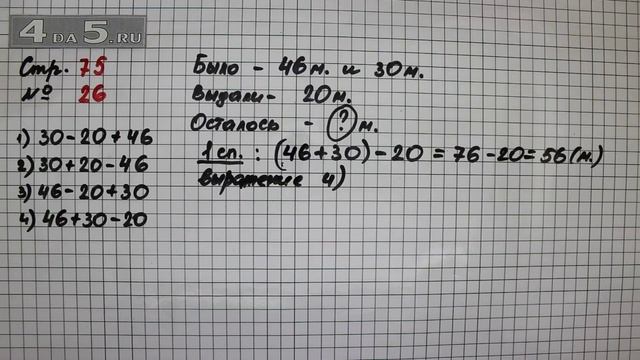 4DA5.RU
Стр. 75
№ 26
1) 30-20+46
2) 30+20-46
3) 46-20+30
4) 46+30-20
Было - 46м. и 30м.
Выдали- 20м.
Осталось - ? м.
1 сп. : (46+30)-20=76-20=56(м.)
выражение 4)